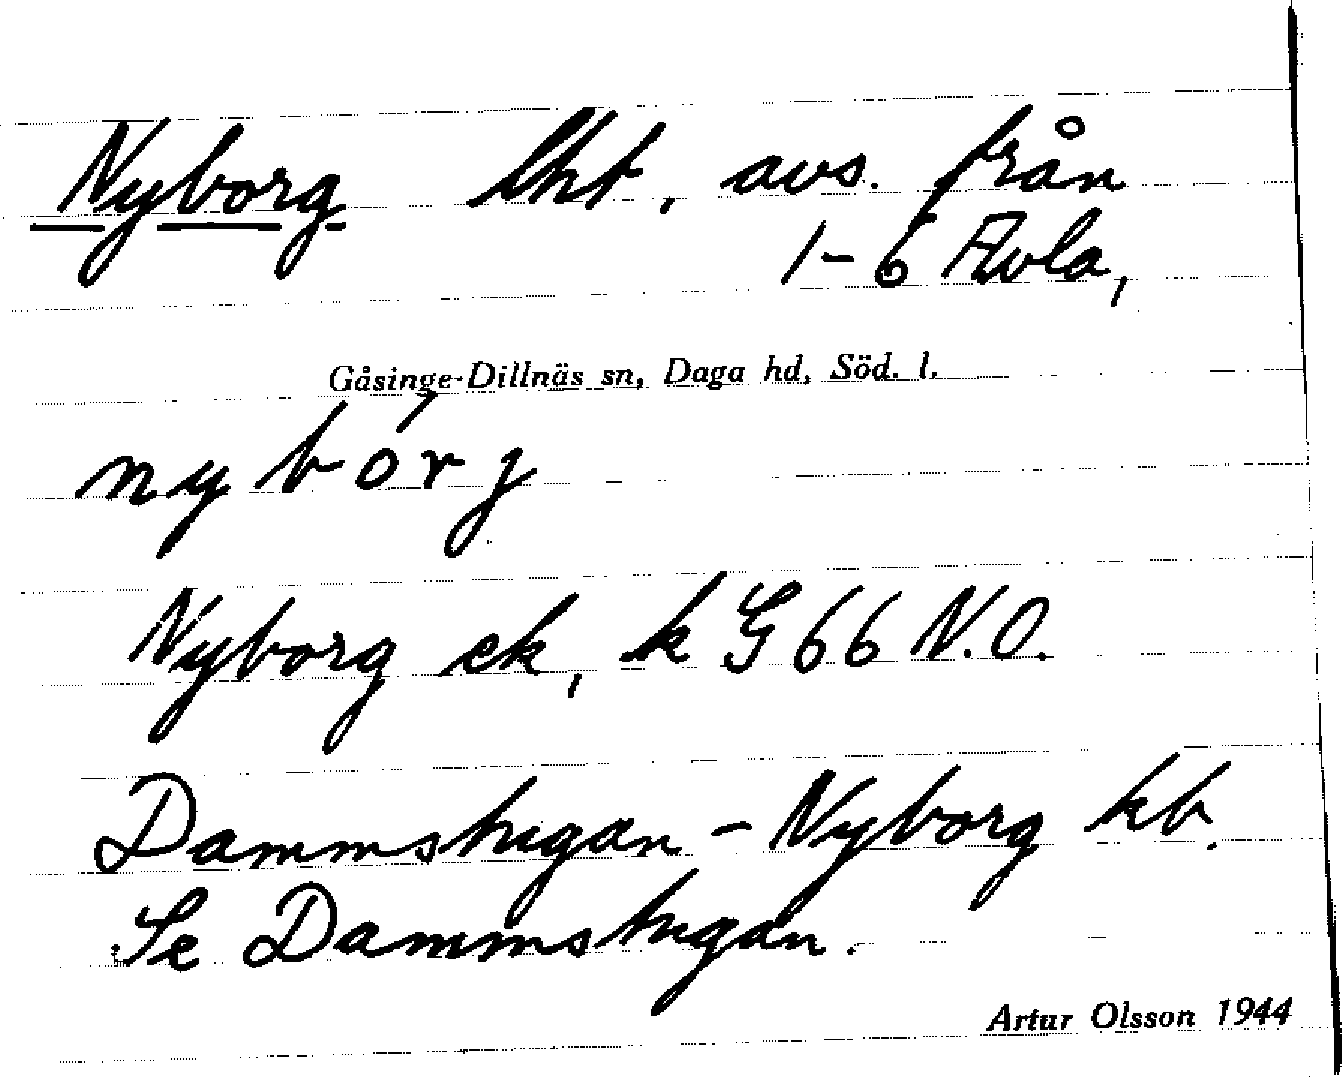 Nyborg lht, avs. från
1-6 Ävla,
Gåsinge-Dillnäs sn, Daga hd, Söd. l.
nybórg
Nyborg ek, k G 66 N.O.
Dammstugan - Nyborg kb.
Se Dammstugan.
Artur Olsson 1944